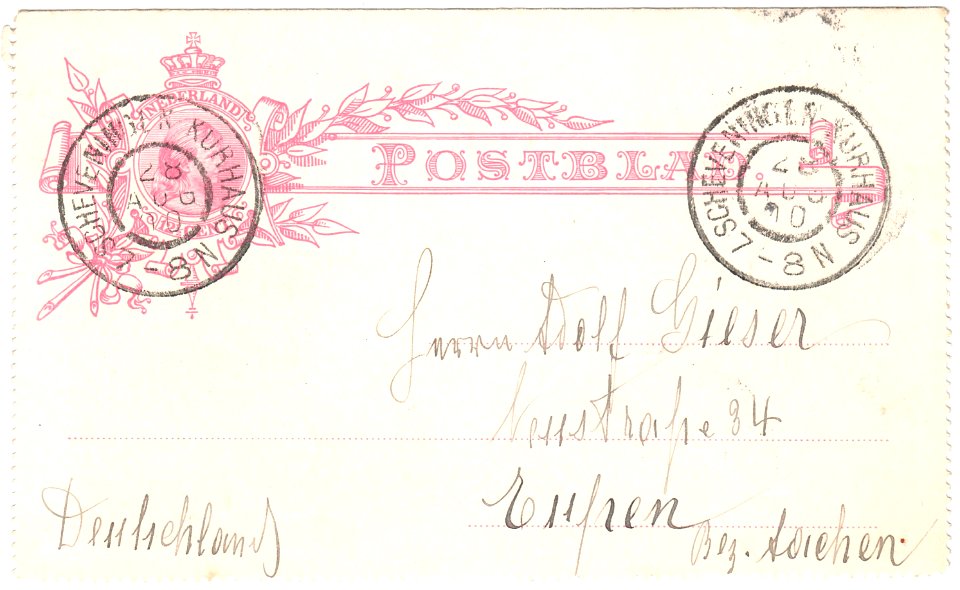 NEDERLAND
POSTBLAD
SCHEVENINGEN KURHAUS
28
AUG
10
7-8N
SCHEVENINGEN KURHAUS
28
AUG
10
7-8N
Herrn Adolf Gieser
Neustraße 34
Eupen
Bez. Aachen.
Deutschland